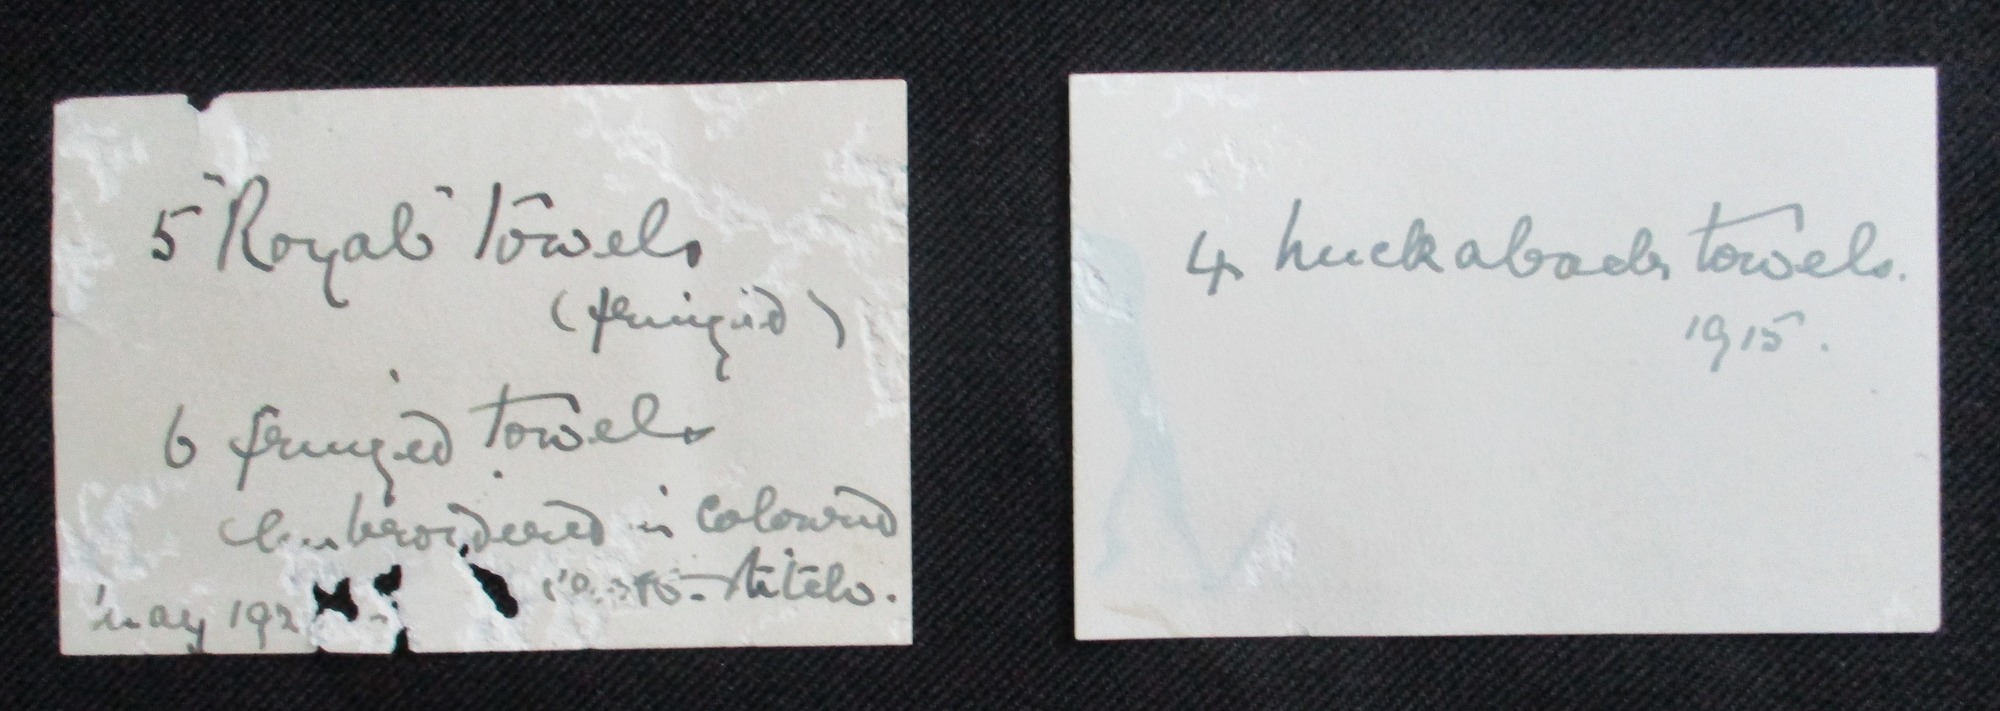 5 "Royal" Towels
(fringed)
6 fringed towels
embroidered in coloured
cross-stitch.
May 192
4 huckaback towels.
1915.